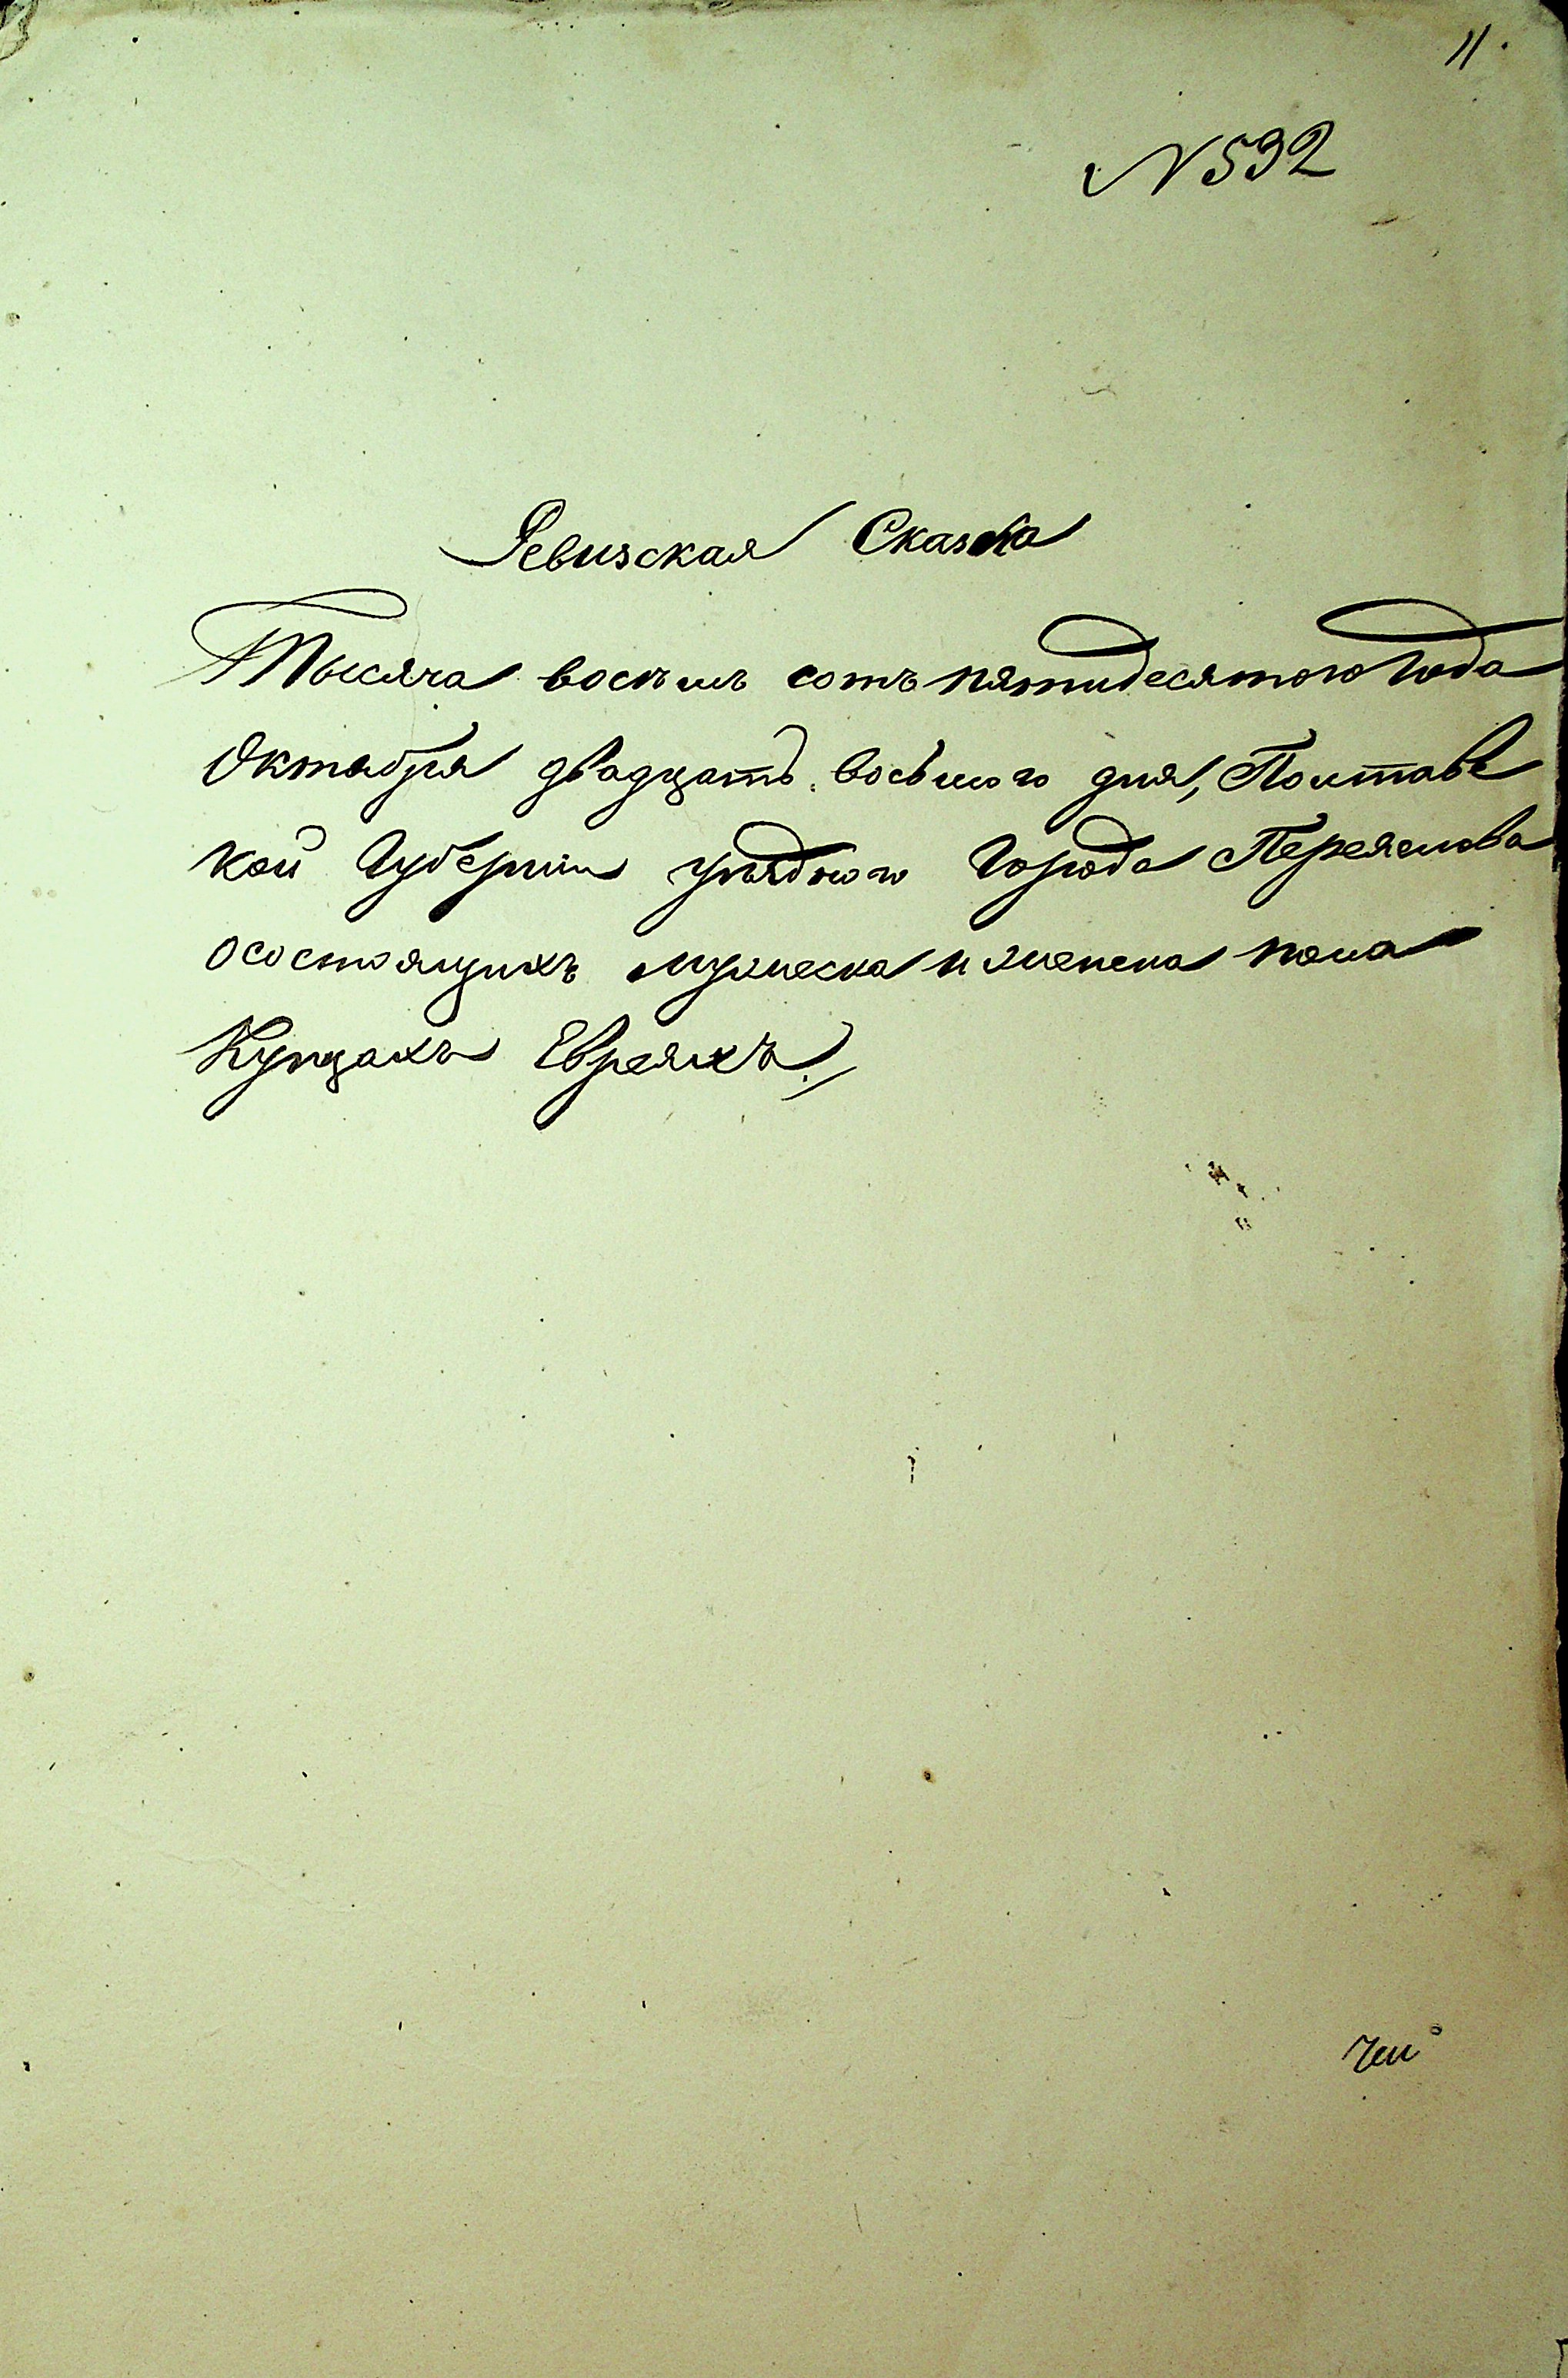 11.
N 592
Ревизская Сказка
Тысяча восемь сотъ пятидесятого Года
Октября двадцать восьмого дня, Полтавс
кой Губерніи уѣздного Города Переяслова
о состоящихъ мужеска и женска пола
Купцахъ Евреяхъ.